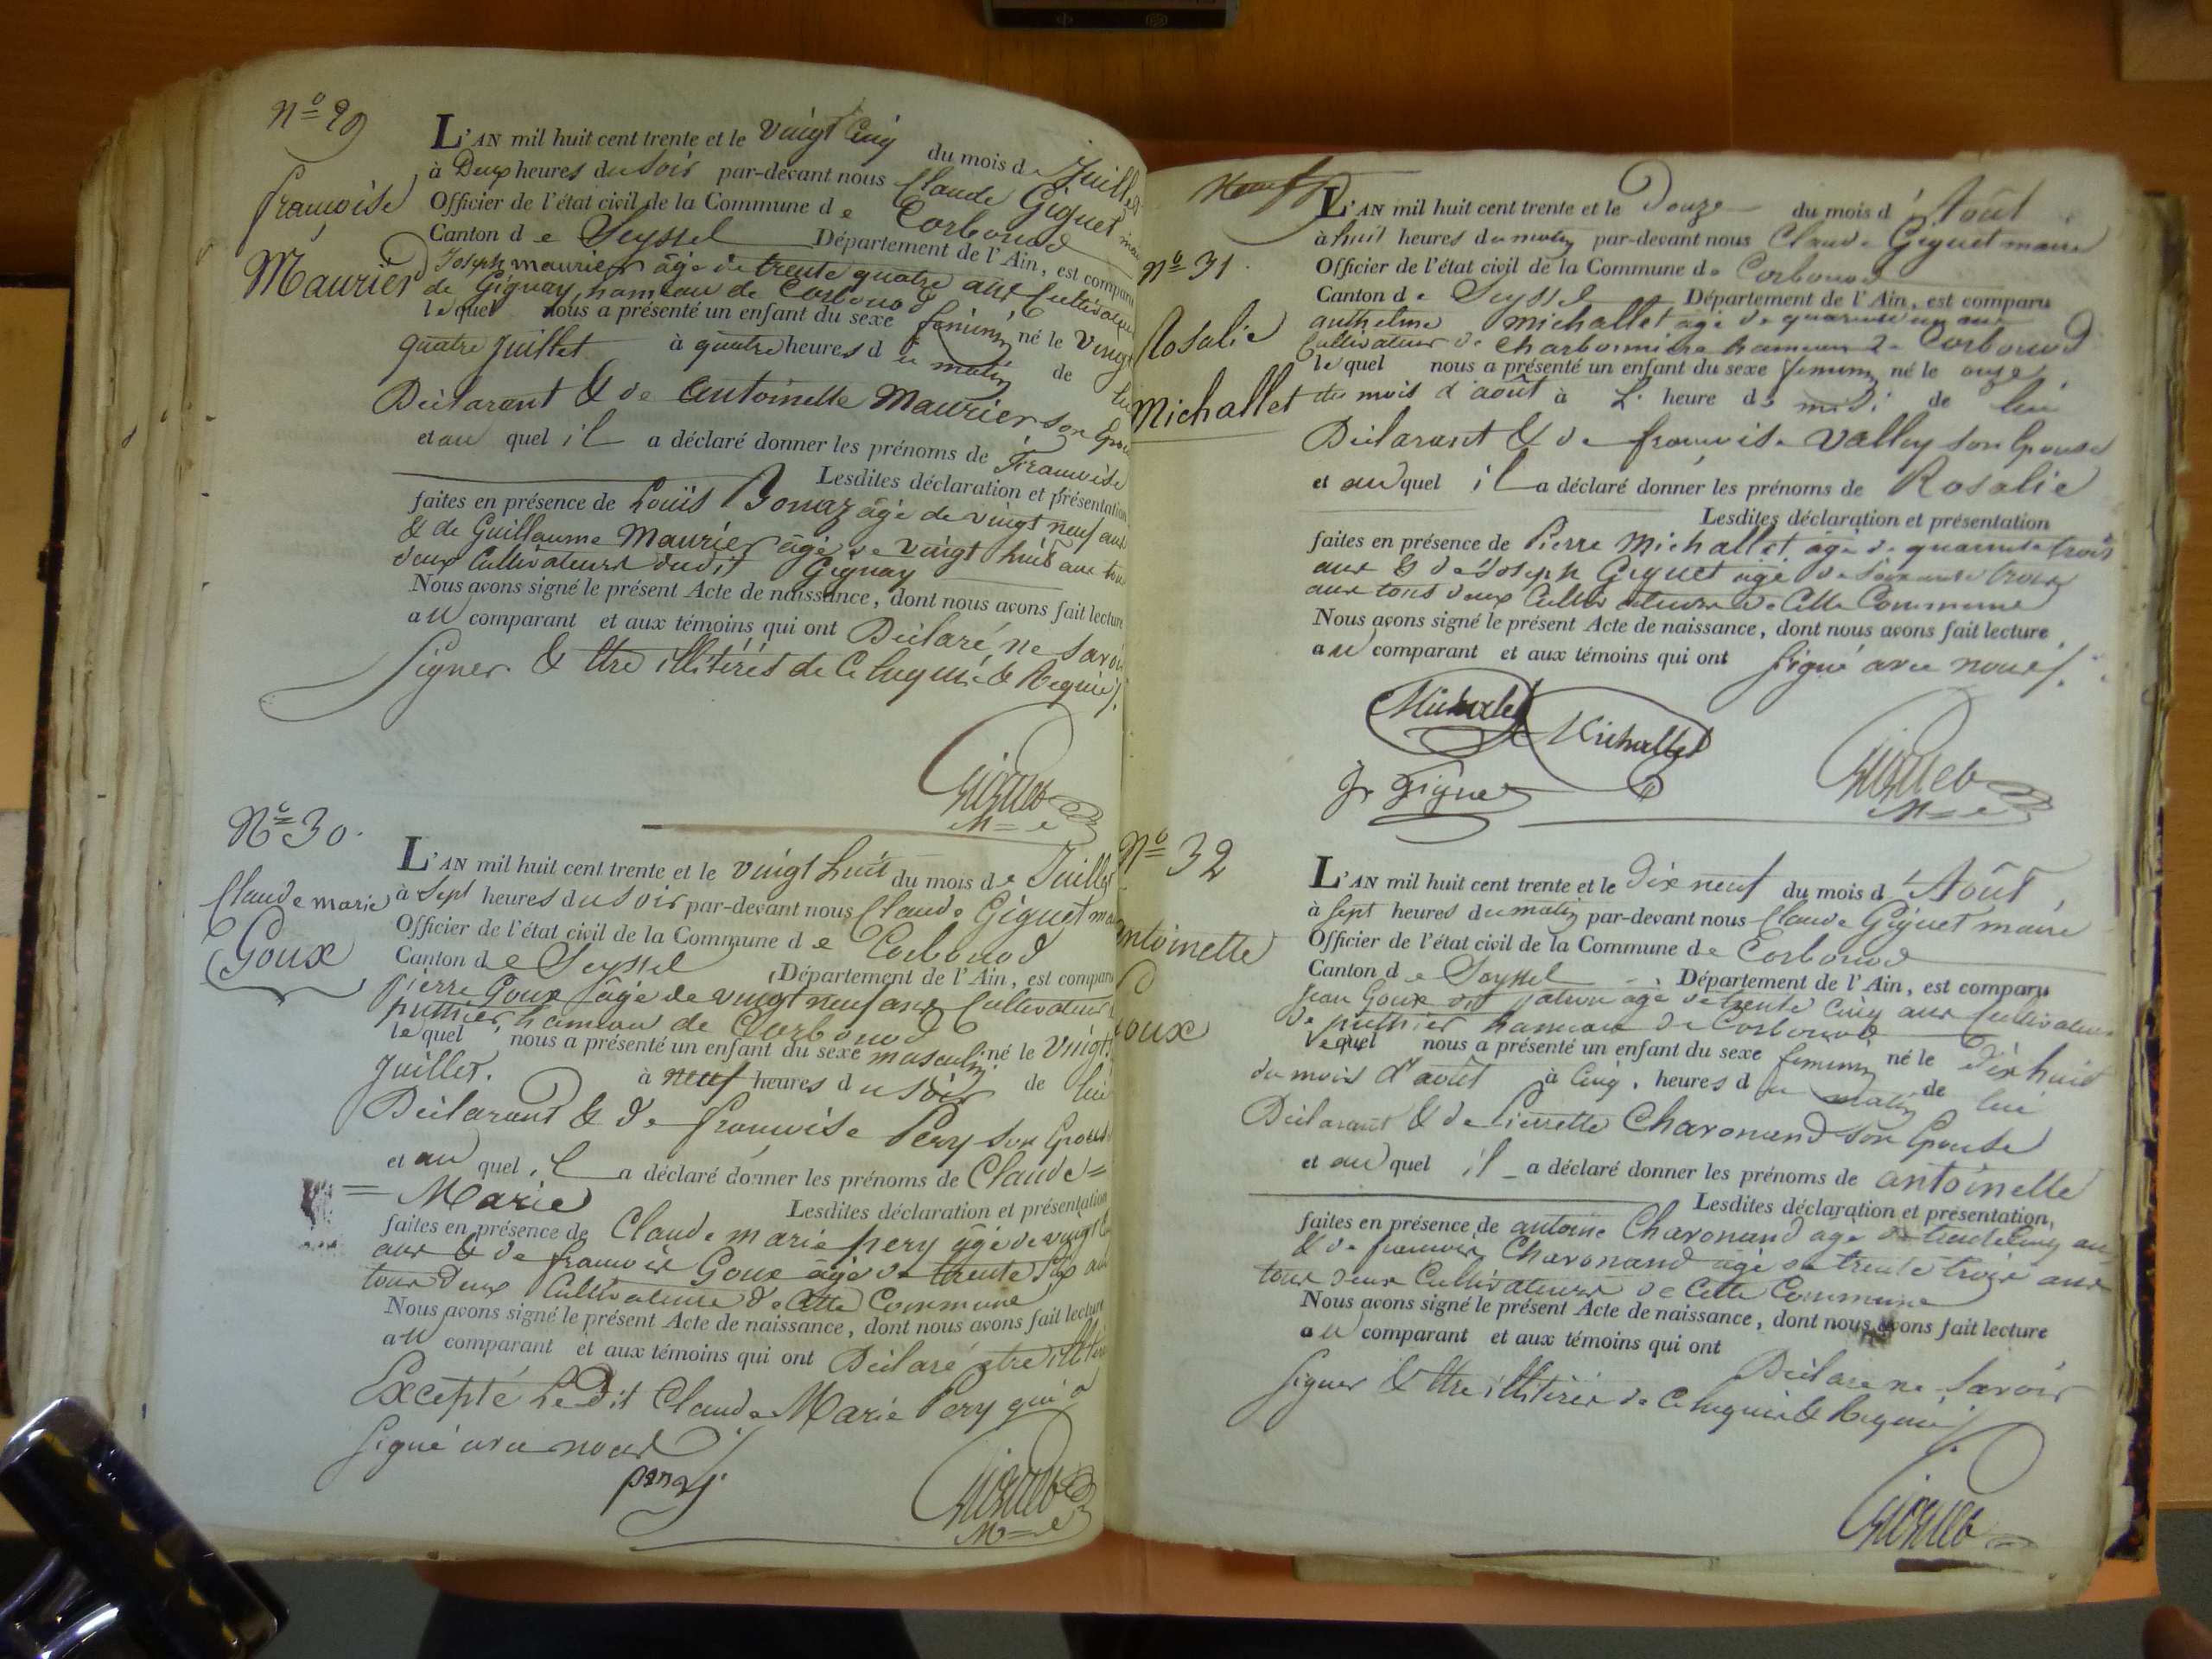 Nº 29
Françoise
Maurier
L'AN mil huit cent trente et le vingt cinq du mois de Juillet
à Deux heures du Soir par-devant nous Claude Giguet maire
Officier de l'état civil de la Commune de Corbonod
Canton de Seyssel Département de l'Ain, est comparu
Joseph maurier âgé de trente quatre ans Cultivateur
de Gignay hameau de Corbonod
lequel nous a présenté un enfant du sexe feminin né le vingt
quatre Juillet à quatre heures du matin de lui
Déclarant & de Antoinette Maurier son Epouse
et au quel il a déclaré donner les prénoms de Françoise
Lesdites déclaration et présentation
faites en présence de Louis Bonaz âgé de vingt neuf ans
& de Guillaume Maurier âgé de vingt huit ans tous
deux Cultivateurs dudit Gignay
Nous avons signé le présent Acte de naissance, dont nous avons fait lecture
au comparant et aux témoins qui ont Déclaré ne Savoir
Signer & être illitérés de Ce Enquis & Requis
Giguet
M=e
Nº 30.
Claude marie
Goux
L'AN mil huit cent trente et le vingt huit du mois de Juillet
à Sept heures du Soir par-devant nous Claude Giguet
Officier de l'état civil de la Commune de Corbonod
Canton de Seyssel Département de l'Ain, est comparu
pierre Goux âgé de vingt neuf ans Cultivateur
puthier, hameau de Corbonod
lequel nous a présenté un enfant du sexe masculin né le vingt
Juillet. à neuf heures du Soir de lui
Déclarant & de françoise Pery Son Epouse
et au quel il a déclaré donner les prénoms de Claude=
= Marie
Lesdites déclaration et présentation
faites en présence de Claude marie pery âgé de vingt
ans & de françois Goux âgé de trente Six ans
tous Deux Cultivateurs de Cette Commune
Nous avons signé le présent Acte de naissance, dont nous avons fait lecture
au comparant et aux témoins qui ont Déclaré etre
Excepté Ledit Claude Marie Pery qui a
Signé avec nous
pery
Giguet
M=e
Nº 31.
Rosalie
Michallet
L'AN mil huit cent trente et le Douze du mois d'Août
à huit heures du matin par-devant nous Claude Giguet maire
Officier de l'état civil de la Commune de Corbonod
Canton de Seyssel Département de l'Ain, est comparu
anthelme michallet âgé de quarante un ans
Cultivateur de Charbonnière hameau de Corbonod
lequel nous a présenté un enfant du sexe feminin né le onze
du mois d'août à L' heure de midi de lui
Déclarant & de françoise Valley Son Epouse
et au quel il a déclaré donner les prénoms de Rosalie
Lesdites déclaration et présentation
faites en présence de Pierre Michallet âgé de quarante trois
ans & de Joseph Giguet âgé de Soixante trois
ans tous deux Cultivateurs de Cette Commune
Nous avons signé le présent Acte de naissance, dont nous avons fait lecture
au comparant et aux témoins qui ont Signé avec nous
Michalet
Michallet
Giguet
M=e
Nº 32
antoinette
Goux
L'AN mil huit cent trente et le Dix neuf du mois d'Août
à Sept heures du matin par-devant nous Claude Giguet maire
Officier de l'état civil de la Commune de Corbonod
Canton de Seyssel Département de l'Ain, est comparu
Jean Goux dit âgé de trente Cinq ans Cultivateur
de puthier hameau de Corbonod
lequel nous a présenté un enfant du sexe feminin né le Dix huit
du mois d'août à Cinq heures du matin de lui
Déclarant & de Pierrette Charonand Son Epouse
et au quel il a déclaré donner les prénoms de antoinette
Lesdites déclaration et présentation,
faites en présence de antoine Charonand âgé de trente Cinq ans
& de françois Charonand âgé de trente trois ans
tous deux Cultivateurs de Cette Commune
Nous avons signé le présent Acte de naissance, dont nous avons fait lecture
au comparant et aux témoins qui ont
Déclaré ne Savoir
Signer & être illitérés de Ce Enquis & Requis
Giguet